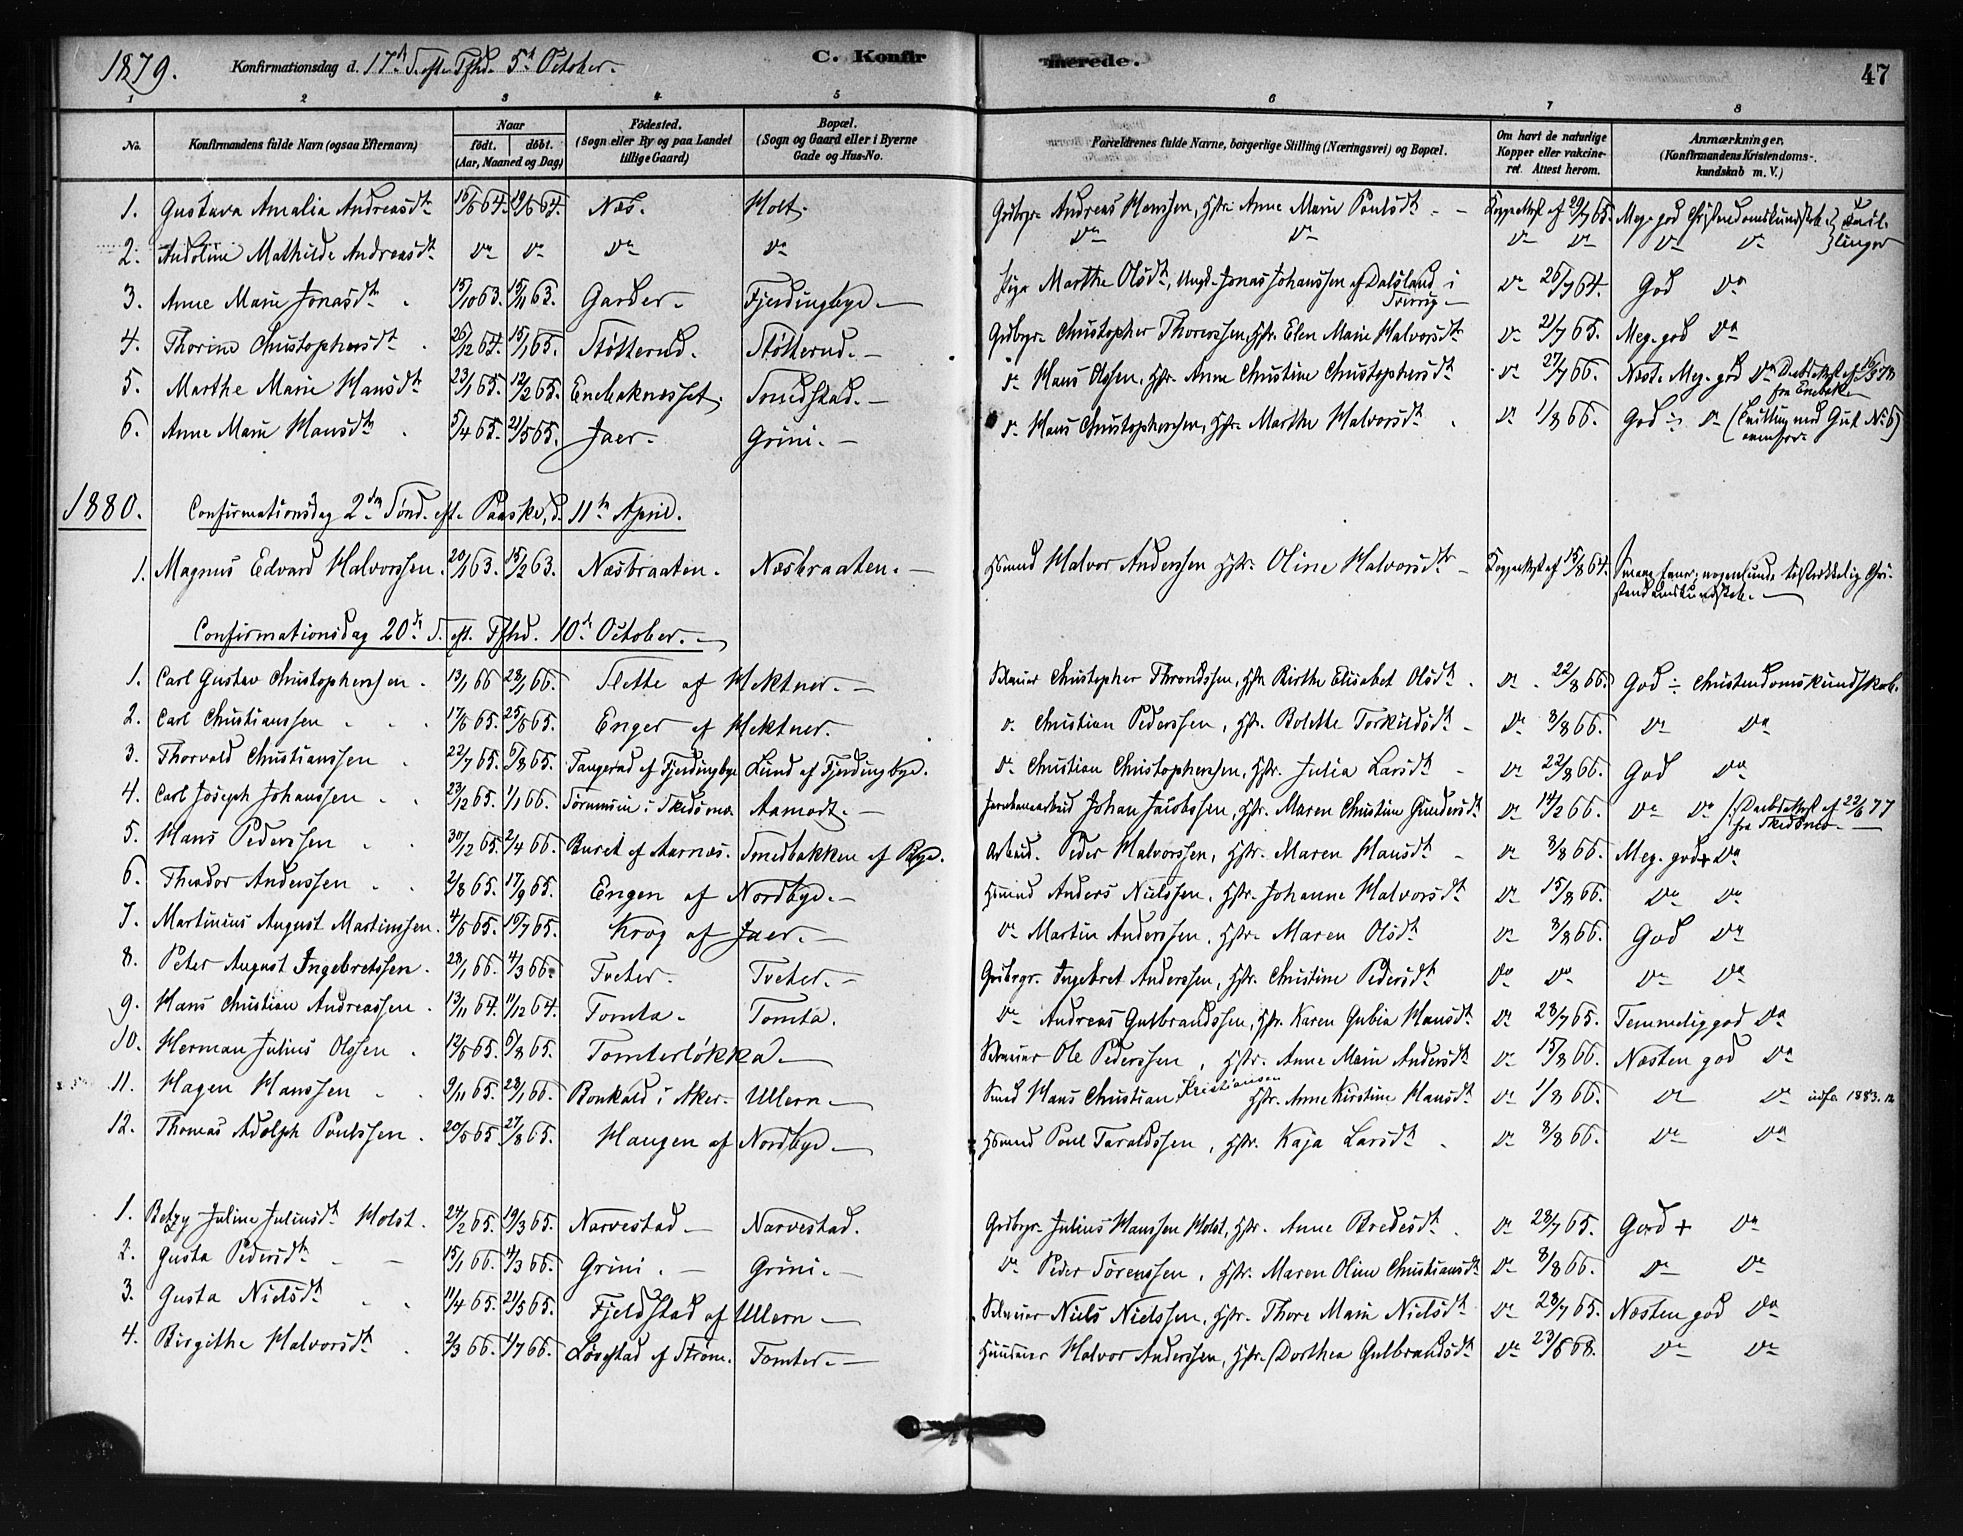 1879. Konfirmationsdag d. 17d S. eft. Tfhd. 5t October. C. Konfirmerede. 47
1 2 3 4 5 6 7 8
No. Konfirmandens fulde Navn (ogsaa Efternavn) Naar født. døbt. (Aar, Maaned og Dag) Födested. (Sogn eller By og paa Landet tillige Gaard) Bopæl. (Sogn og Gaard eller i Byerne Gade og Hus-No. Forældrenes fulde Navne, borgerlige Stilling (Næringsvei) og Bopæl. Om havt de naturlige Kopper eller vakcineret. Attest herom. Anmærkninger. (Konfirmandens Kristendomskundskab m. V.)
1. Gustava Amalia Andreasdt 64. 64. Næs. Holt. Grdbrgr. Andreas Hanssen, Hstr. Anne Marie Poulsdt Koppeattest af 29/7 65. Meg. god Christendomskundskab. Tvillinger
2. Andoline Mathilde Andreasdt do do do do do do do do do do
3. Anne Marie Jonasdt 15/10 63. 15/11 63. Garder. Fjerdingbye. Pige Marthe Olsdt, Ungk. Jonas Johanssen af Dalsland i do 26/7 64. God do
4. Thorine Christophersdt 26/12 64. 15/1 65. Støtterud. Støtterud. Grdbrgr. Christopher Thorerssen, Hstr. Elen Marie Halvorsdt do 21/7 65. Meg. god do
5. Marthe Marie Hansdt 23/1 65. 12/2 65. Enebaknesset. Smedstad. do Hans Olssen, Hstr. Anne Christine Christophersdt do 27/7 66. Næst. Meg. god do fra Enebak
6. Anne Marie Hansdt 5/4 65. 21/5 65. Jaer. Grini. do Hans Christophersen, Hstr. Marthe Halvorsdt do 1/8 66. God ÷ do (Tvilling med Gut No 6) ovenfor
1880. Confirmationsdag 2den Sønd. eft. Paaske, d. 11te April.
1. Magnus Edvard Halvorssen. 20/1 63. 15/2 63. Næsbraaten. Næsbraaten. Hsmnd Halvor Anderssen Hstr. Oline Halvorsdtr Koppeattest af 15/8 64. nogenlunde tilstrækkelig Christendomskundskab.
Confirmationsdag 20de S. eft. Tfhd. 10de October.
1. Carl Gustav Christophersen. 13/1 66 28/1 66. Slette af Hektner. Christopher Throndssen, Hstr. Birthe Elisabet Olsdt. do 22/8 66. God ÷ Christendomskundskab.
2. Carl Christianssen 17/5 65. 25/5 65. Enger af Hektner. do Christian Pederssen, Hstr. Bolette Torkildsdt do 3/8 66. do do
3. Thorvald Christianssen 22/7 65. 6/8 65. Tangerud af Fjerdingbye Lund af Fjerdingbye. do Christian Christophersen, Hstr. Julia Larsdt do 22/8 66. God do
4. Carl Joseph Johanssen 23/12 65. 1/1 66. i Skedsmo. Aamodt. Johan Jacobssen, Hstr. Maren Christine Gundersdt do 14/2 66. do do (Daabsattest af 22/6 77 fra Skedsmo.
5. Hans Pederssen 30/12 65. 2/4 66. Buret af Aarnæs. Smedbakken af Bye. Arbeid. Peder Halvorssen, Hstr. Maren Hansdt do 3/8 66. Meg. god + do
6. Theodor Anderssen 2/8 65. 17/9 65. Engen af Nordbye. Hsmnd Anders Nielssen, Hstr. Johanne Halvorsdt do 15/8 66. do do
7. Martinius August Martinssen. 4/5 65. 10/7 65. Krog af Jaer. do Martin Anderssen, Hstr. Maren Olsdt do 3/8 66. God do
8. Peter August Ingebretssen. 28/1 66. 4/3 66. Tveter. Tveter. Grdbrgr. Ingebret Anderssen, Hstr. Christine Pedersdt do do do do
9. Hans Christian Andreassen 13/11 64. 11/12 64. Tomta. Tomta. do Andreas Gulbrandssen, Hstr. Karen Gubia Hansdt do 28/7 65. Temmelig god do
10. Herman Julius Olssen. 12/5 65. 6/8 65. Tomterløkka. Ole Pederssen, Hstr. Anne Marie Andersdt do 15/8 66. Næsten god do
11. Hagen Hanssen 9/11 65. 28/1 66. i Aker. Ullern. Smed Hans Christian Kristiansen Hstr. Anne Kirstine Hansdt do 1/8 66. do do 1883.
12. Thomas Adolph Poulssen. 20/5 65 27/8 65. Haugen af Nordbye. Hsmnd Poul Taraldssen, Hstr. Kaja Larsdt do 3/8 66. do do
1. Betzy Juline Juliusdt Holst. 24/2 65. 19/3 65. Narvestad Narvestad. Grdbrgr. Julius Hanssen Holst, Hstr. Anne Bredesdt. do 28/7 65. God + do
2. Gusta Pedersdt. 15/1 66. 4/3 66. Grini. Grini. do Peder Sørenssen, Hstr. Maren Oline Christiansdt do 3/8 66. do do
3. Gusta Nielsdt 11/4 65. 21/5 65. Fjeldstad af Ullern Niels Nielssen, Hstr. Thore Marie Nielsdt. do 28/7 65. Næsten god do
4. Birgithe Halvorsdt. 2/3 66. 1/7 66. Løvstad af Strøm. Tomter. Halvor Anderssen, Hstr. Dorthea Gulbrandsdt do 23/6 68. do do